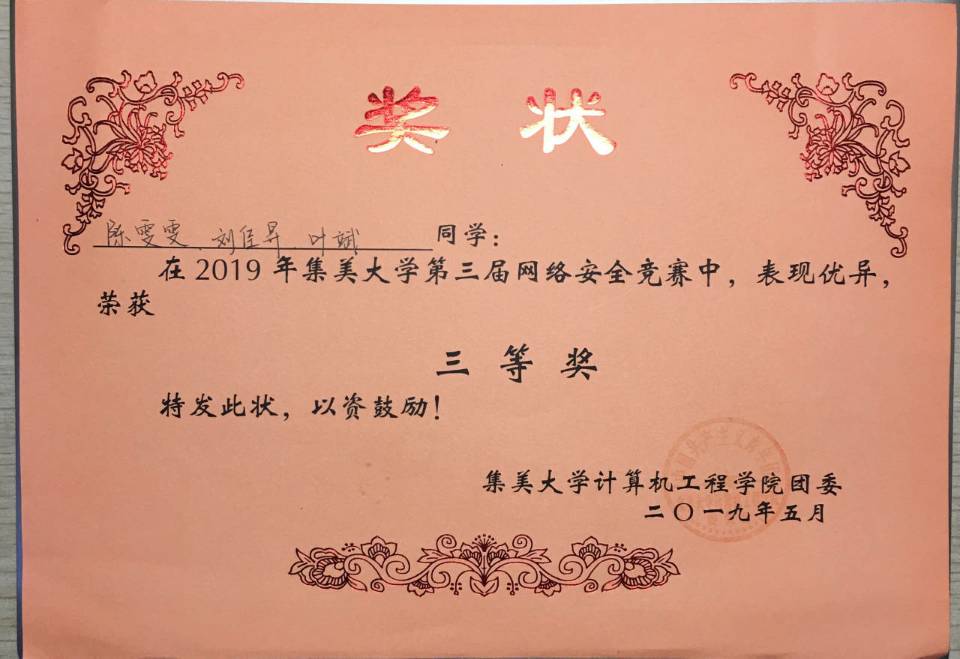 奖 状
陈雯雯、刘佳昇、叶斌 同学:
在2019年集美大学第三届网络安全竞赛中,表现优异,
荣获
三 等 奖
特发此状,以资鼓励!
集美大学计算机工程学院团委
二〇一九年五月